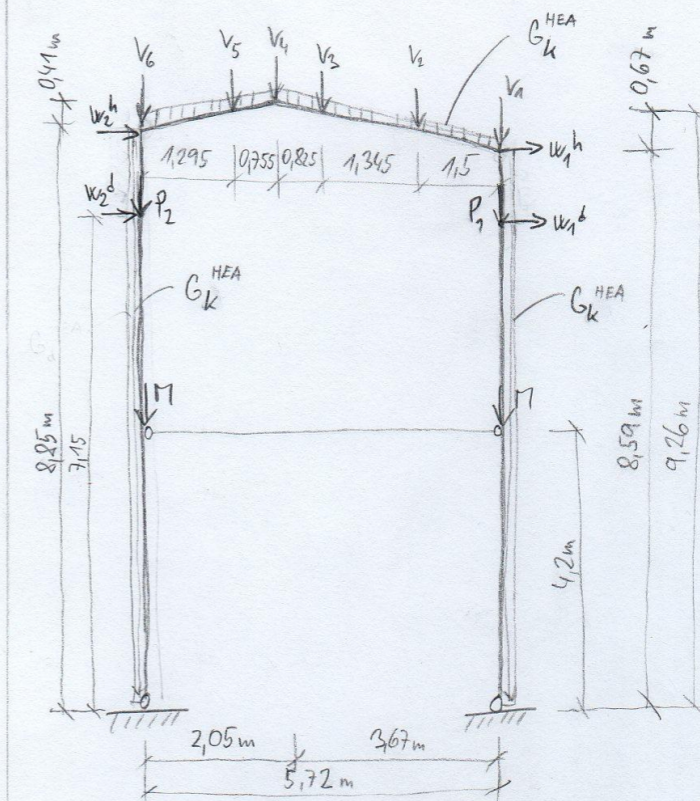 V6
V5
V4
V3
V2
V1
G_k^HEA
0,41 m
0,67 m
w2^h
w1^h
1,295
0,755
0,825
1,345
1,5
w2^d
P2
P1
w1^d
G_k^HEA
G_k^HEA
M
M
8,85 m
7,15
8,59 m
9,26 m
4,2 m
2,05 m
3,67 m
5,72 m